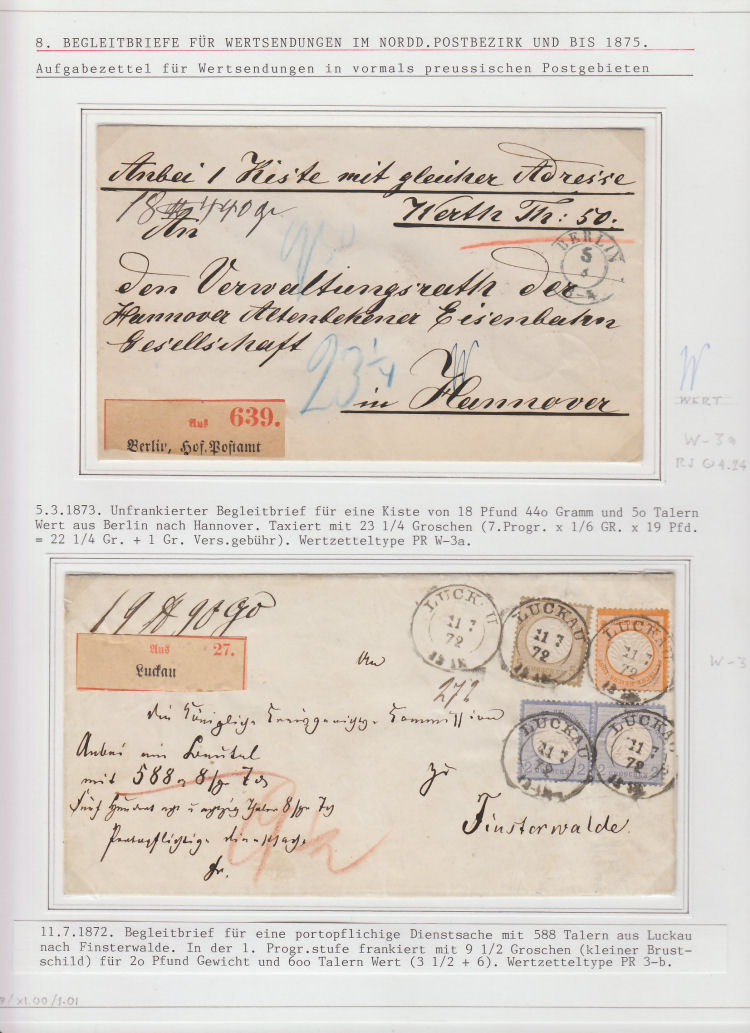 8. BEGLEITBRIEFE FÜR WERTSENDUNGEN IM NORDD.POSTBEZIRK UND BIS 1875.
Aufgabezettel für Wertsendungen in vormals preussischen Postgebieten
Anbei 1 Kiste mit gleicher Adresse
18 440 gr.
Werth Th: 50.
An
BERLIN
5
den Verwaltungsrath der
Hannover Altenbekener Eisenbahn
Gesellschaft
23 1/4
in Hannover
W
WERT
W-3a
Aus 639.
Berlin, Hof-Postamt
5.3.1873. Unfrankierter Begleitbrief für eine Kiste von 18 Pfund 44o Gramm und 5o Talern
Wert aus Berlin nach Hannover. Taxiert mit 23 1/4 Groschen (7.Progr. x 1/6 GR. x 19 Pfd.
= 22 1/4 Gr. + 1 Gr. Vers.gebühr). Wertzetteltype PR W-3a.
LUCKAU
11 7
72
LUCKAU
11 7
72
LUCKAU
11 7
72
Aus 27.
Luckau
W-3
An
272
die Königliche Kreisgerichts-Commission
LUCKAU
11 7
72
LUCKAU
11 7
72
Anbei ein Beutel
mit 588
zu
Finsterwalde.
Portopflichtige Dienstsache
11.7.1872. Begleitbrief für eine portopflichige Dienstsache mit 588 Talern aus Luckau
nach Finsterwalde. In der 1. Progr.stufe frankiert mit 9 1/2 Groschen (kleiner Brust-
schild) für 2o Pfund Gewicht und 6oo Talern Wert (3 1/2 + 6). Wertzetteltype PR 3-b.